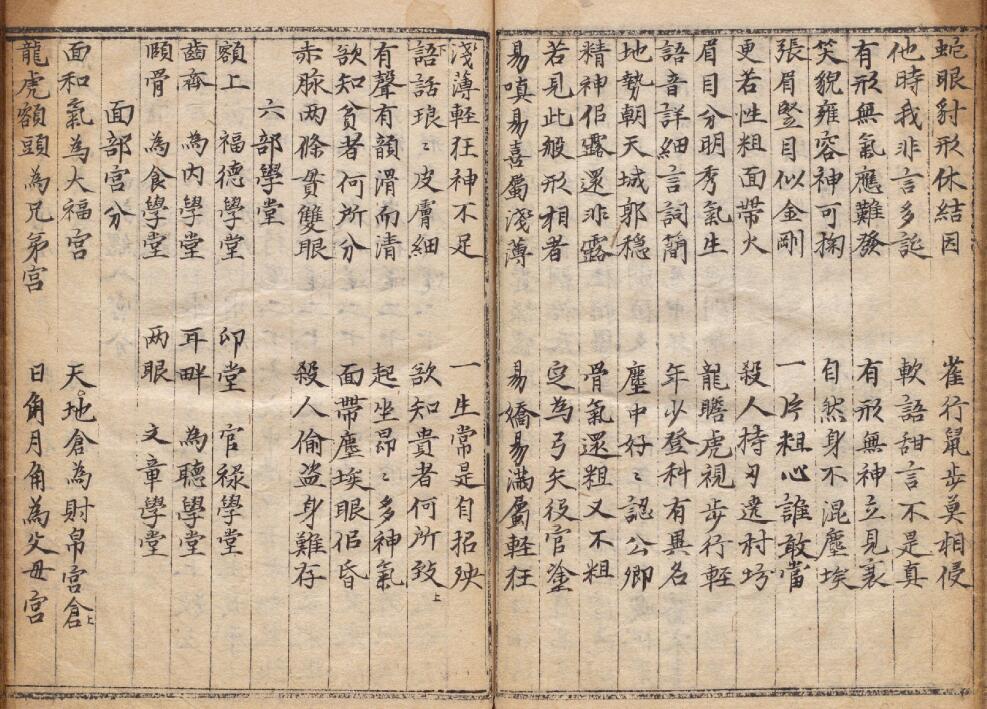 蛇眼豺形休結因 雀行鼠步莫相侵
他時我非言多詑 軟語甜言不是真
有形無氣應難發 有形無神立見衰
笑貌雍容神可掬 自然身不混塵埃
張眉竪目似金剛 一片粗心誰敢當
更若性粗面帶火 殺人持刃遶村坊
眉目分明秀氣生 龍瞻虎視步行輕
語音詳細言詞簡 年少登科有異名
地勢朝天城郭穩 塵中好〻認公卿
精神佀露還非露 骨氣還粗又不粗
若見此般形相者 定為弓矢役官塗
易嗔易喜屬淺薄 易嬌易滿屬軽狂
淺薄輕狂神不足 一生常是自招殃
語話琅〻皮膚細 欲知貴者何所致
有聲有韻滑而清 起坐昂〻多神氣
欲知貧者何所分 面帶塵埃眼佀昏
赤脉两條貫雙眼 殺人偷盗身難存
六部學堂
額上 福德學堂 印堂 官禄學堂
齒齊 為内學堂 耳畔 為聰學堂
頤骨 為食學堂 两眼 文章學堂
面部宮分
面和氣為大福宮 天地倉為財帛宮倉上
龍虎額頭為兄弟宮 日角月角為父母宮